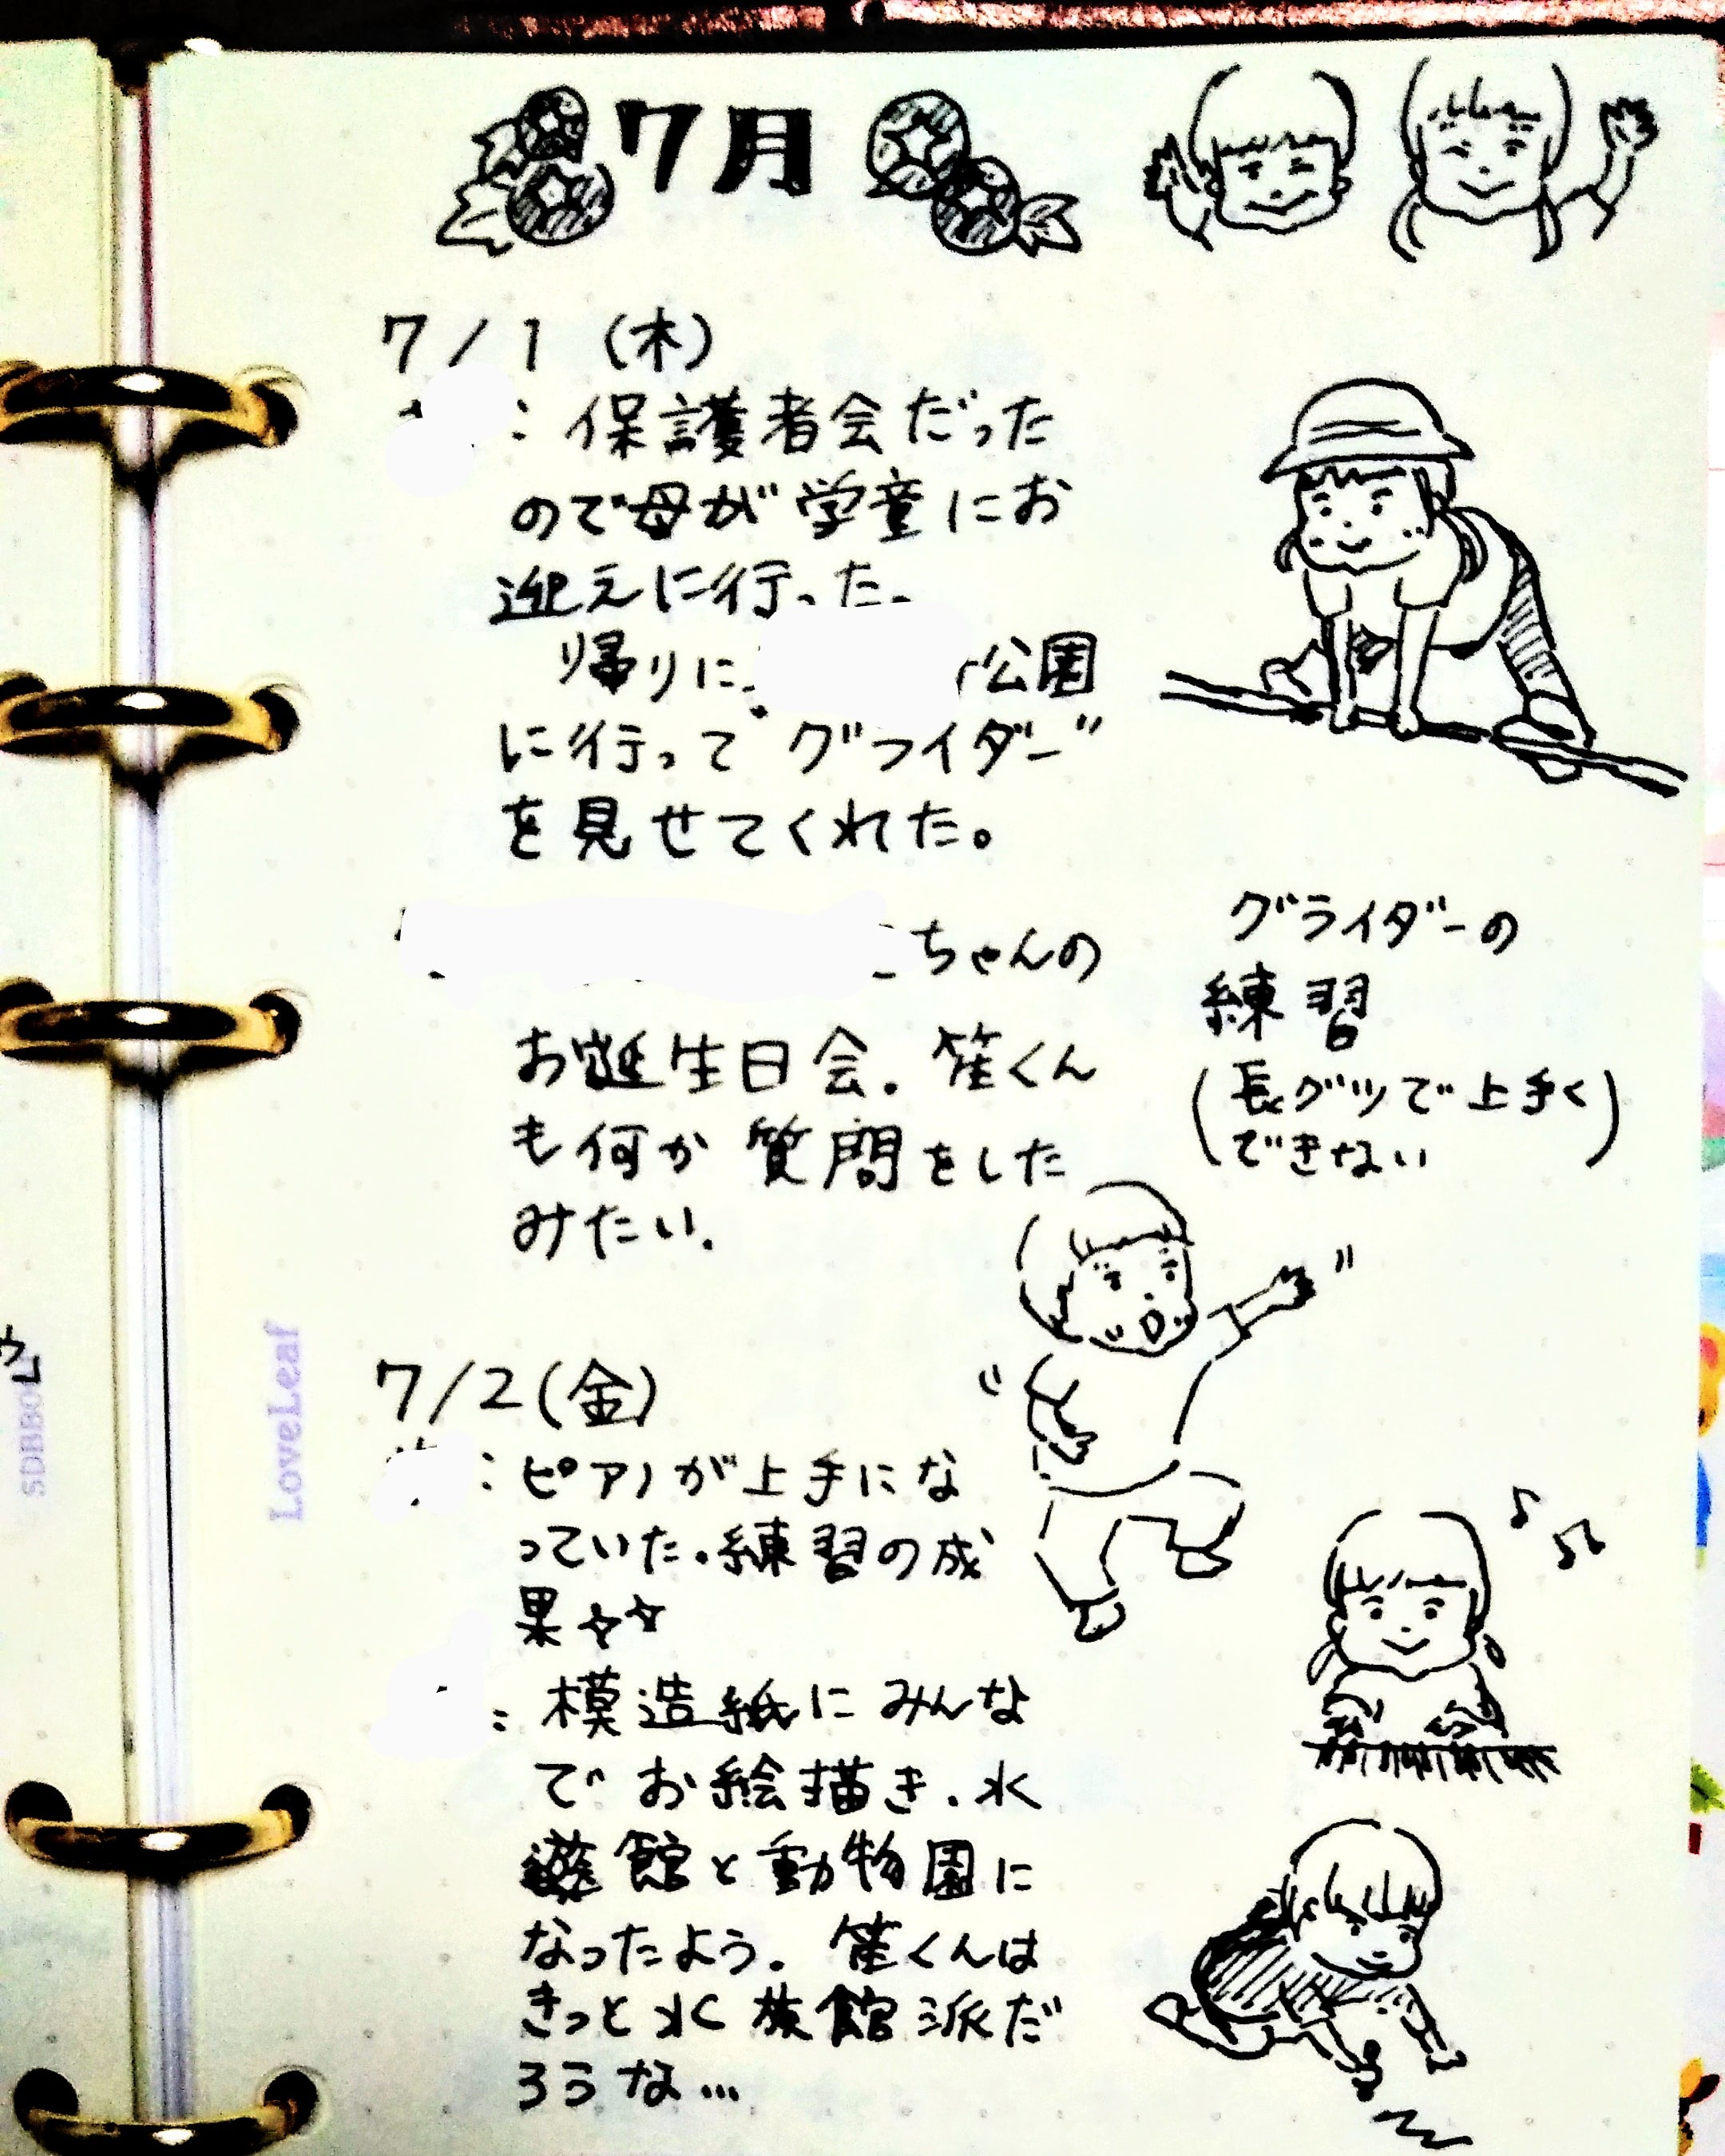 7月
7/1 (木)
: 保護者会だった
ので母が学童にお
迎えに行った.
帰りに 公園
に行って"グライダー"
を見せてくれた。
ちゃんの
お誕生日会. 笙くん
も何か質問をした
みたい.
グライダーの
練習
(長グツで上手く
できない)
7/2(金)
: ピアノが上手にな
っていた.練習の成
果☆☆
: 模造紙にみんな
でお絵描き. 水
館と動物園に
なったよう. 笙くんは
きっと水族館派だ
ろうな...
LoveLeaf